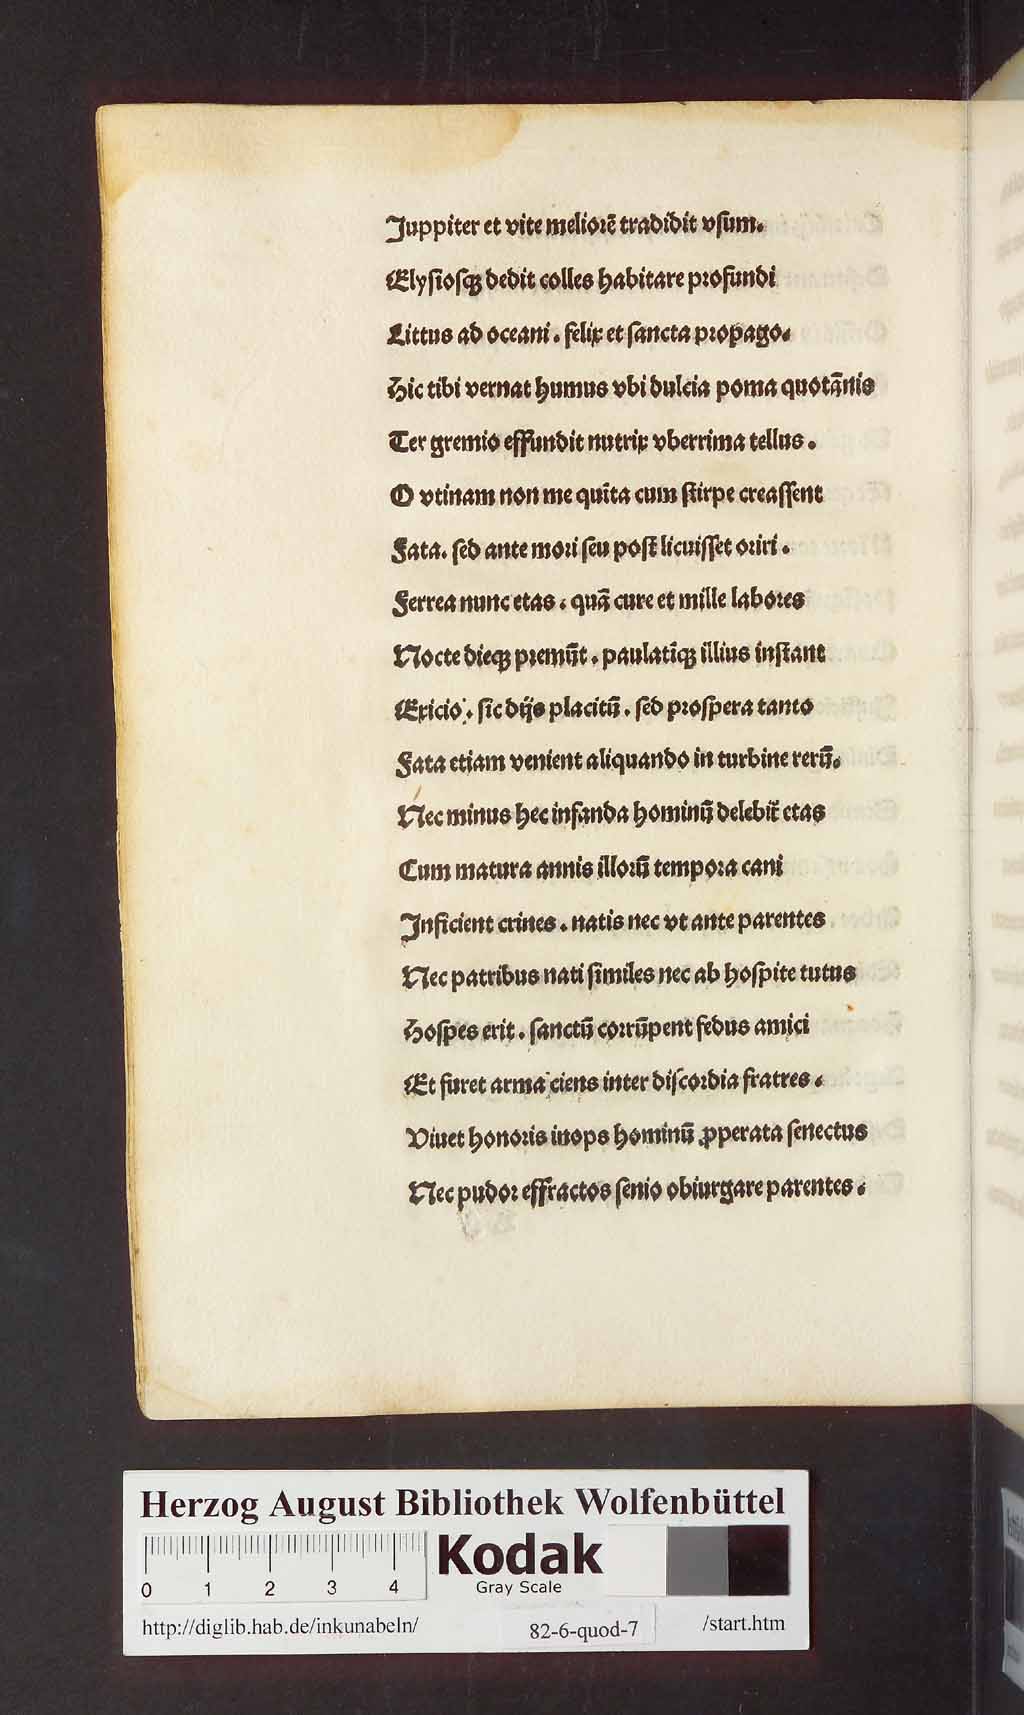 Juppiter et vite meliorē tradidit vsum.
Elysiosqꝫ dedit colles habitare profundi
Littus ad oceani . felix et sancta propago.
Hic tibi vernat humus vbi dulcia poma quotānis
Ter gremio effundit nutrix vberrima tellus .
O vtinam non me quīta cum stirpe creassent
Fata. sed ante mori seu post̄ licuisset oriri .
Ferrea nunc etas . quā cure et mille labores
Nocte dieqꝫ premūt . paulatīqꝫ illius instant
Exicio . sic dijs placitū . sed prospera tanto
Fata etiam venient aliquando in turbine rerū.
Nec minus hec infanda hominū delebit̄ etas
Cum matura annis illorū tempora cani
Inficient crines . natis nec vt ante parentes
Nec patribus nati similes nec ab hospite tutus
Hospes erit . sanctū corrūpent fedus amici
Et furet arma ciens inter discordia fratres .
Viuet honoris inops hominū ꝓperata senectus
Nec pudor effractos senio obiurgare parentes .
Herzog August Bibliothek Wolfenbüttel
0 1 2 3 4
Kodak
Gray Scale
http://diglib.hab.de/inkunabeln/ 82-6-quod-7 /start.htm